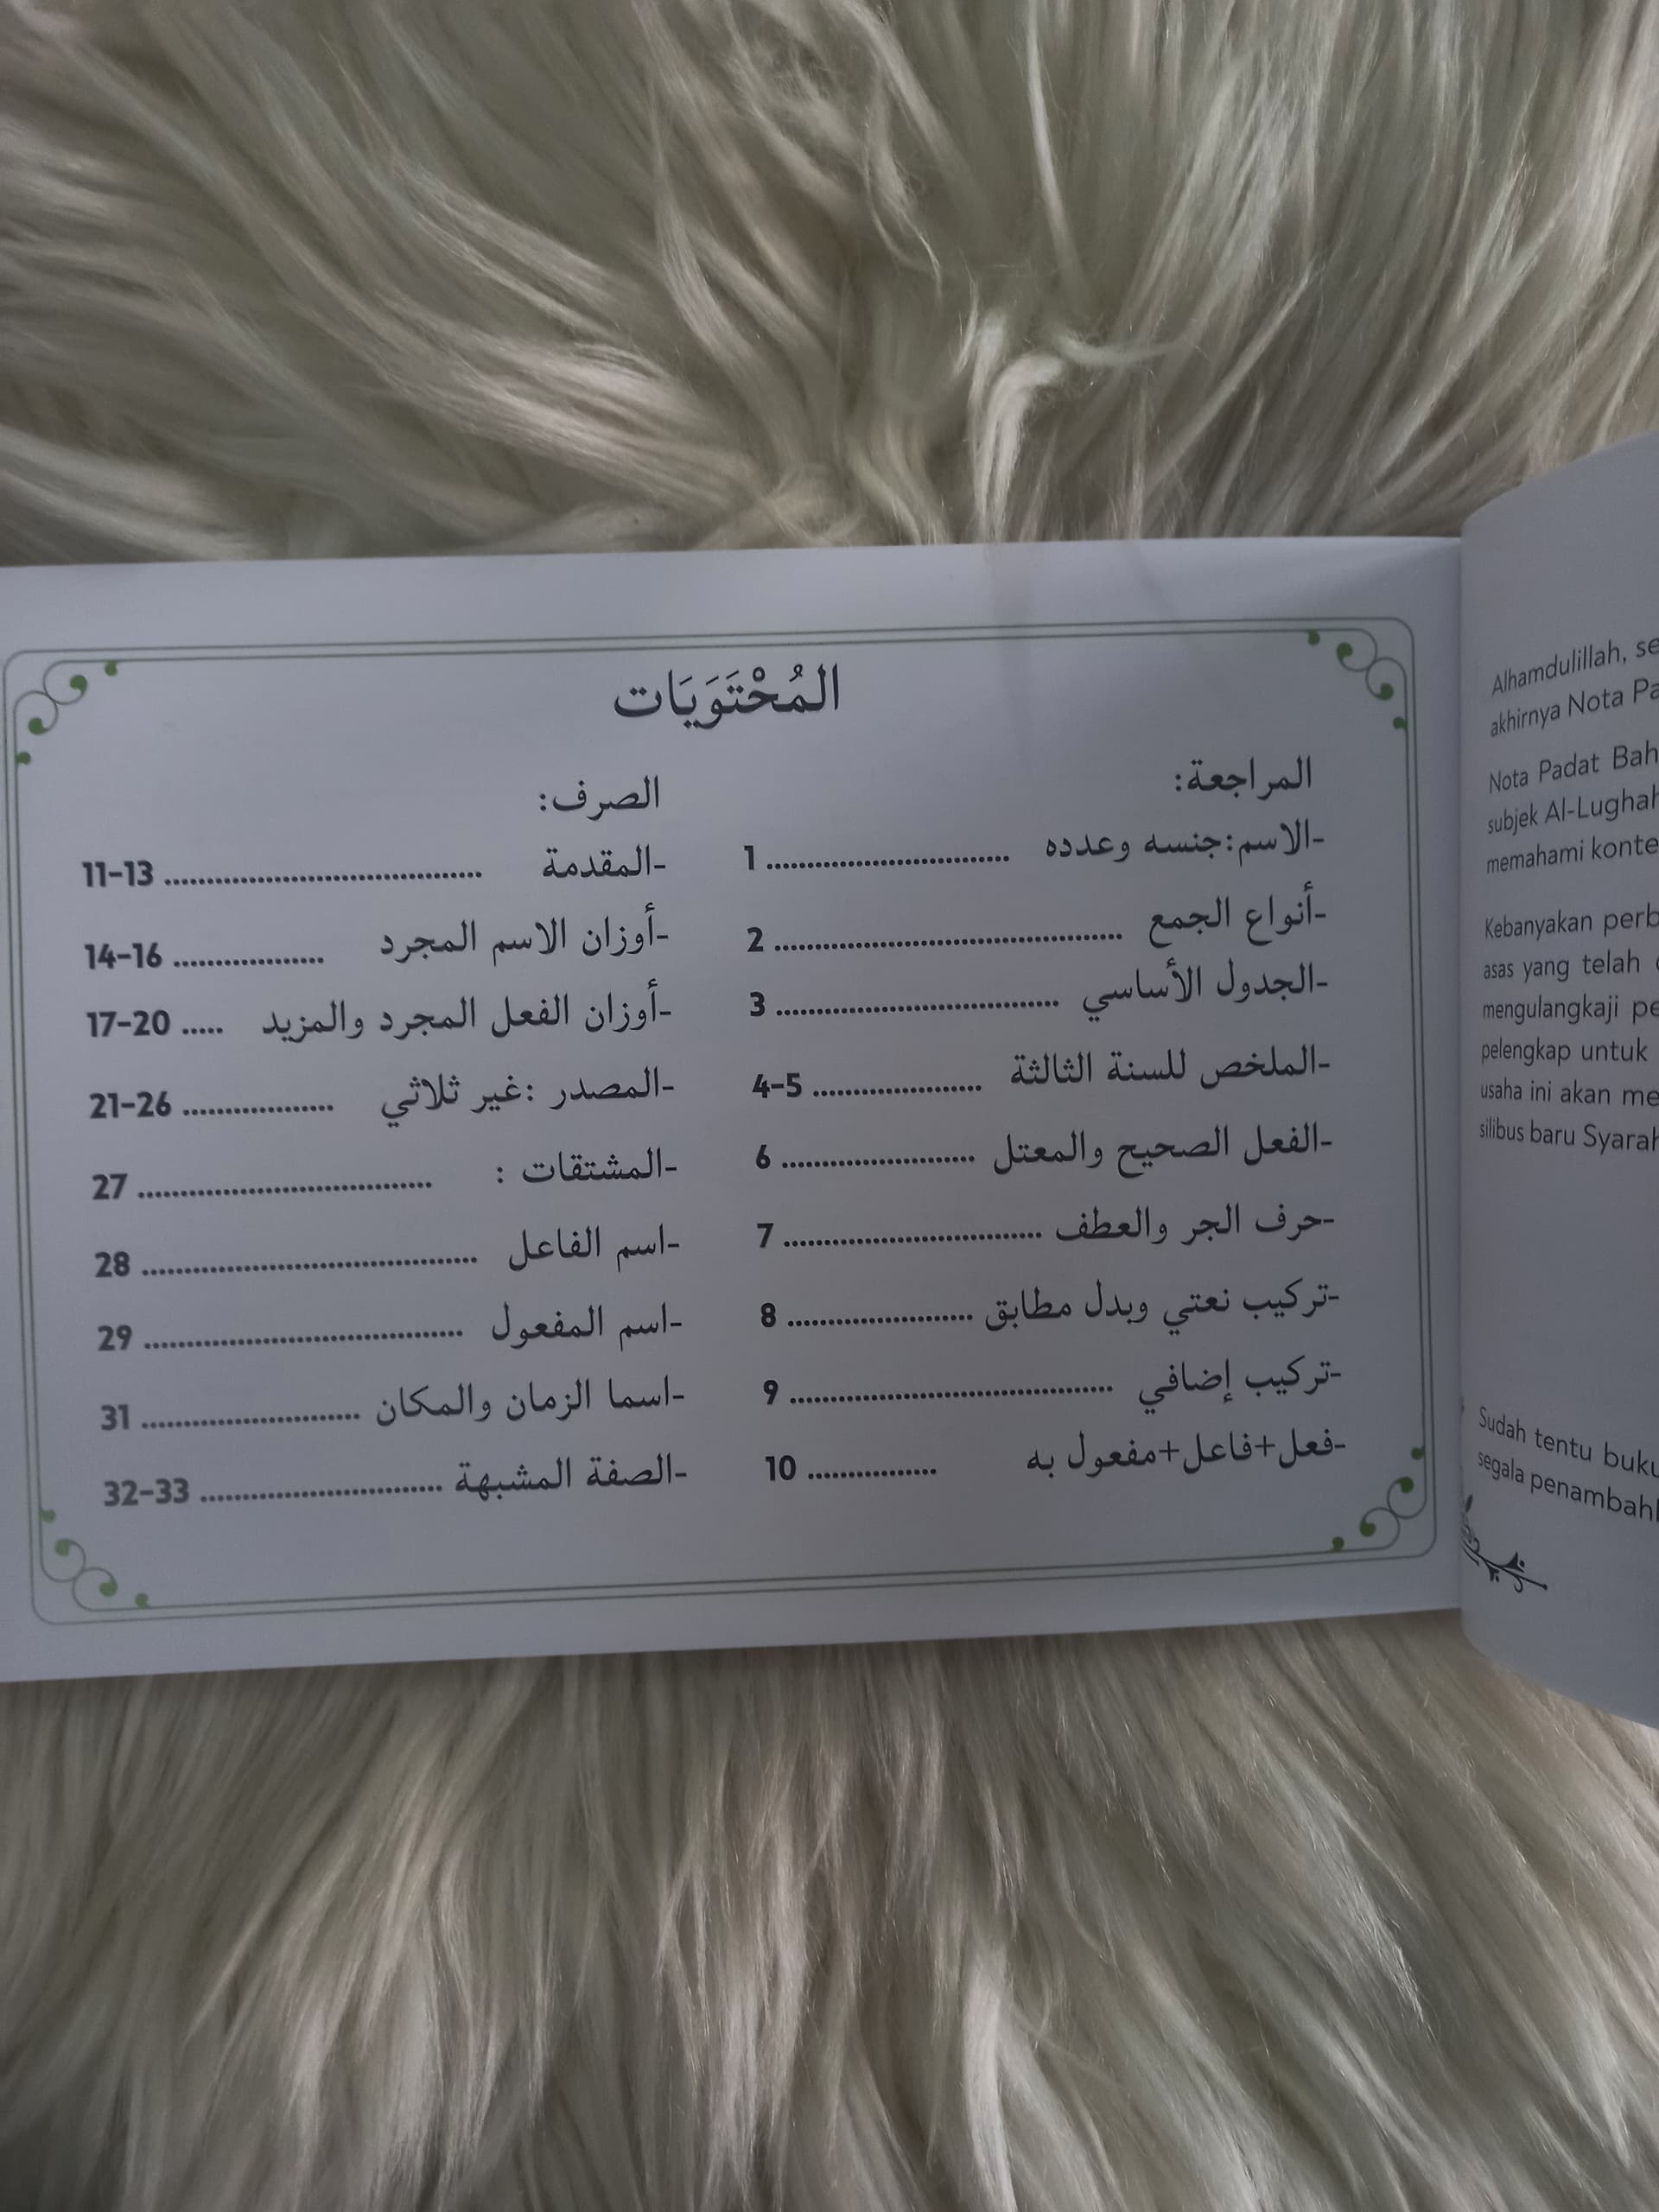 المُحْتَوَيَات
المراجعة:
-الاسم:جنسه وعدده .............................. 1
-أنواع الجمع .......................................... 2
-الجدول الأساسي .................................. 3
-الملخص للسنة الثالثة .................... 4-5
-الفعل الصحيح والمعتل ....................... 6
-حرف الجر والعطف ............................... 7
-تركيب نعتي وبدل مطابق ...................... 8
-تركيب إضافي ....................................... 9
-فعل+فاعل+مفعول به ................ 10
الصرف:
-المقدمة ...................................... 11-13
-أوزان الاسم المجرد .................. 14-16
-أوزان الفعل المجرد والمزيد ..... 17-20
-المصدر :غير ثلاثي .................. 21-26
-المشتقات : ................................... 27
-اسم الفاعل ........................................ 28
-اسم المفعول ...................................... 29
-اسما الزمان والمكان .......................... 31
-الصفة المشبهة ............................. 32-33
Alhamdulillah,
akhirnya Nota
Nota Padat
subjek
memahami
Kebanyakan
asas yang telah
mengulangkaji
pelengkap untuk
usaha ini akan
silibus baru
Sudah tentu
segala